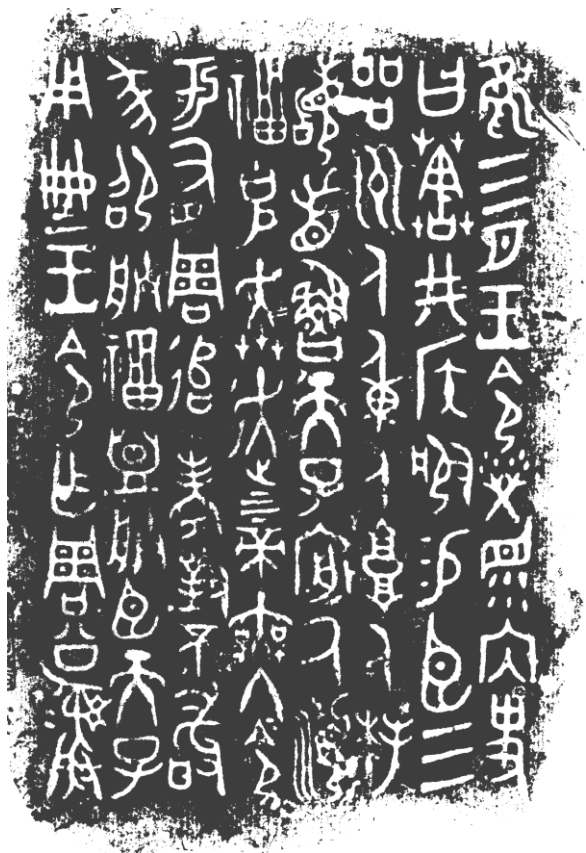 隹三月王令榮眔內史
曰𦮘井侯服易臣三
品州人重人𩫖人拜
稽首魯天子𢓊厥瀕
福克奔走上下帝無冬令
于有周追考對不敢
彖邵朕福盟朕臣天子
用典王令乍周公彝